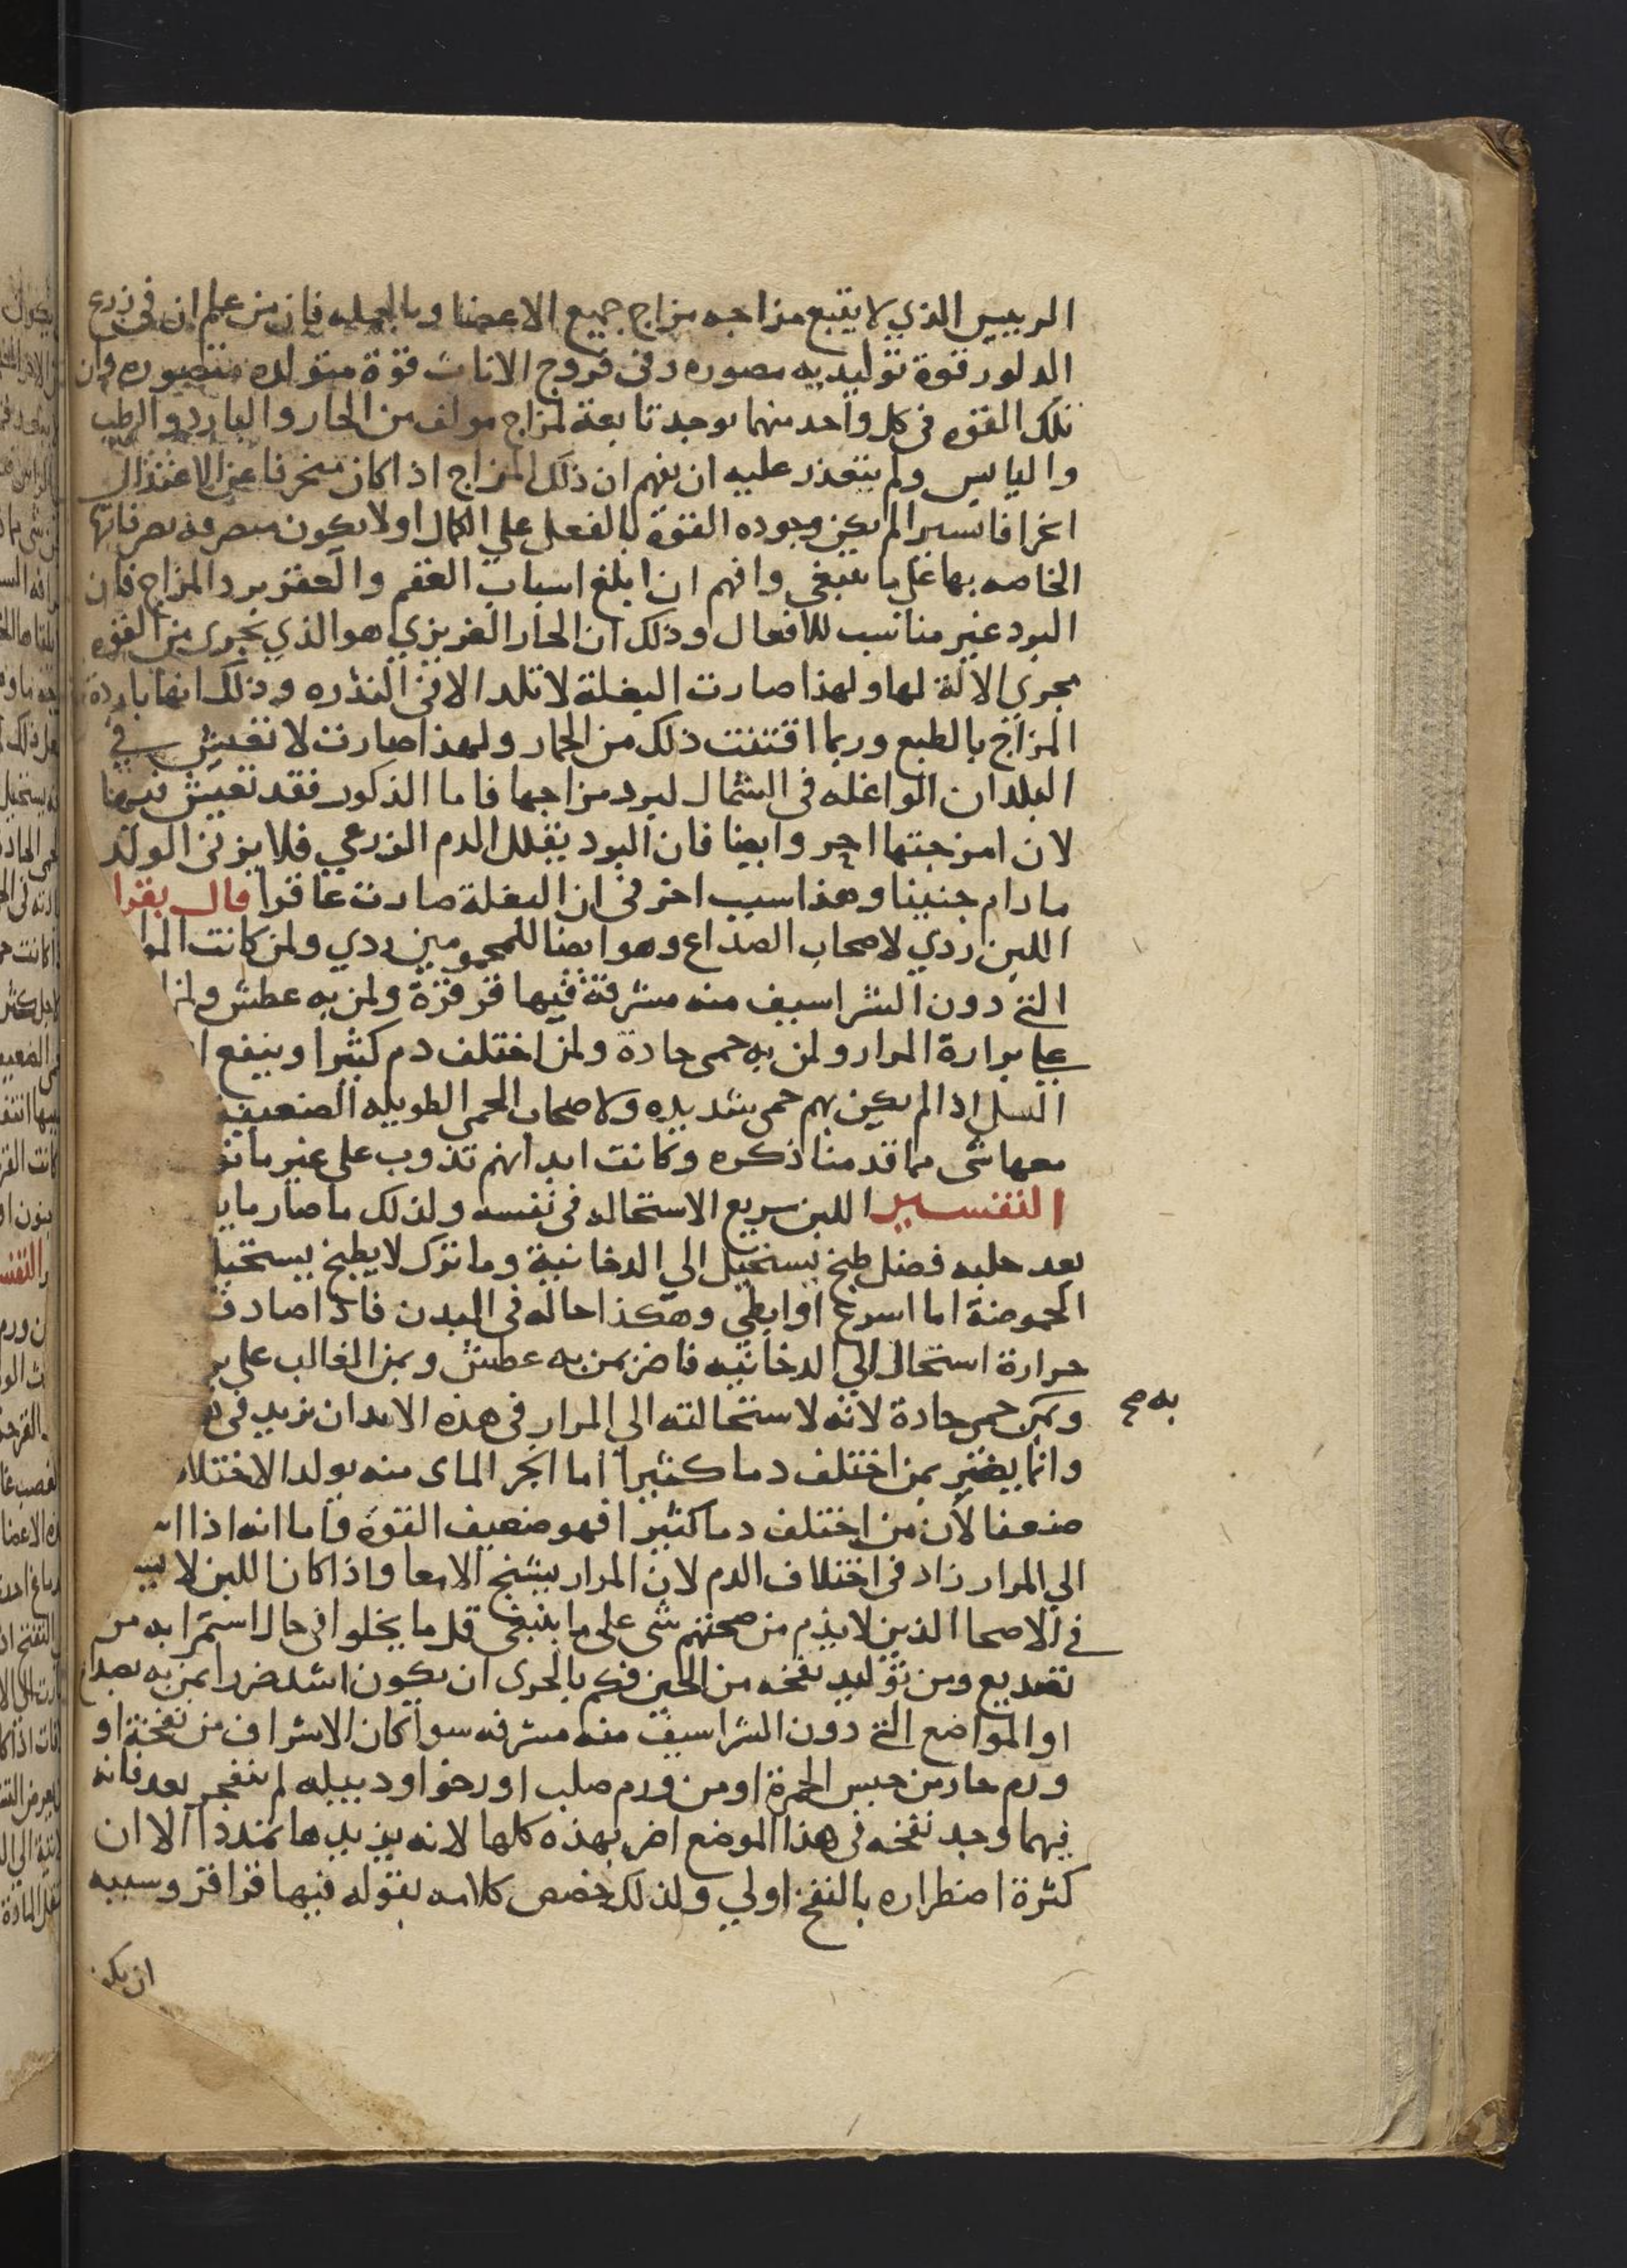 الرييس الذي لا يتبع مزاجه مزاج جميع الاعضا وبالجمله فان من علم ان في زرع
الدلور قوة توليديه مصوره وفي فروج الاناث قوة متولده متصوره وان
تلك القوه في كل واحد منهما توجد تابعة لمزاج مولف من الحار والبارد والرطب
واليابس ولم يتعذر عليه ان يفهم ان ذلك المزاج اذا كان منحرفا عن الاعتدال
انحرافا يسيرا لم يكن وجوده القوة بالفعل علي الكمال اولا يكون متصرفه تصرفاتها
الخاصه بها علي ما ينبغي وافهم ان ابلغ اسباب العقم والعقر برد المزاج فان
البرد غير مناسب للافعال وذلك ان الحار الغريزي هو الذي يجري من القوه
مجري الالة لها ولهذا صارت البغلة لا تلد الا في الندره وذلك انها باردة
المزاج بالطبع وربما اقتنت ذلك من الحمار ولهذا صارت لا تعيش في
البلدان الواغله في الشمال لبرد مزاجها فاما الذكور فقد تعيش فيها
لان امزجتها احر وايضا فان البرد يقلل الدم الزرعي فلا يربي الولد
مادام جنينا وهذا سبب اخر في ان البغلة صارت عاقرا قال بقرا
اللبن ردي لاصحاب الصداع وهو ايضا للمحمومين ردي ولمن كانت الموا
التي دون الشراسيف منه مشرفة فيها قرقرة ولمن به عطش ولمن
علي برازة المرار ولمن به حمي حادة ولمن اختلف دم كثيرا وينفع ا
السل اذا لم يكن بهم حمي شديده ولاصحاب الحمي الطويله الضعيفه
معها شي مما قدمنا ذكره وكانت ابدانهم تذوب علي غير ما
التفسير اللبن سريع الاستحاله في نفسه ولذلك ما صار ما ي
بعد حلبه فضل طبخ يستحيل الي الدخانية وما ترك لا يطبخ يستحيل
الحموضة اما اسرع او ابطي وهكذا حاله في البدن فاذا صادف
حرارة استحال الي الدخانيه فاضر بمن به عطش وبمن الغالب علي بر
وبمن حمي حادة لانه لاستحالته الي المرار في هذه الابدان يزيد في
به صح
وانما يضر بمن اختلف دما كثيرا اما الجز الماي منه يولد الاختلا
ضعفا لان من اختلف دما كثيرا فهو ضعيف القوة واما انه اذا ا
الي المرار زاد في اختلاف الدم لان المرار يسحج الامعا واذا كان اللبن لا
في الاصحا الذين لا يذم من صحتهم شي علي ما ينبغي قل ما يخلوا في حال استمرايه من
تصديع ومن توليد نفخه من الحين فكم بالحري ان يكون اشد ضررا بمن به صداع
او المواضع التي دون الشراسيف منه مشرفه سوا كان الاشراف من نفخة او
ورم حار من جنس الحمرة او من ورم صلب او رخو او دبيله لم ينفجر بعد فانه
فيهما وجد نفخه في هذا الموضع اضر بهذه كلها لانه يزيدها تمددا الا ان
كثرة اضطراره بالنفخ اولي ولذلك خصص كلامه بقوله فيها قراقر وسببه
ان يكو